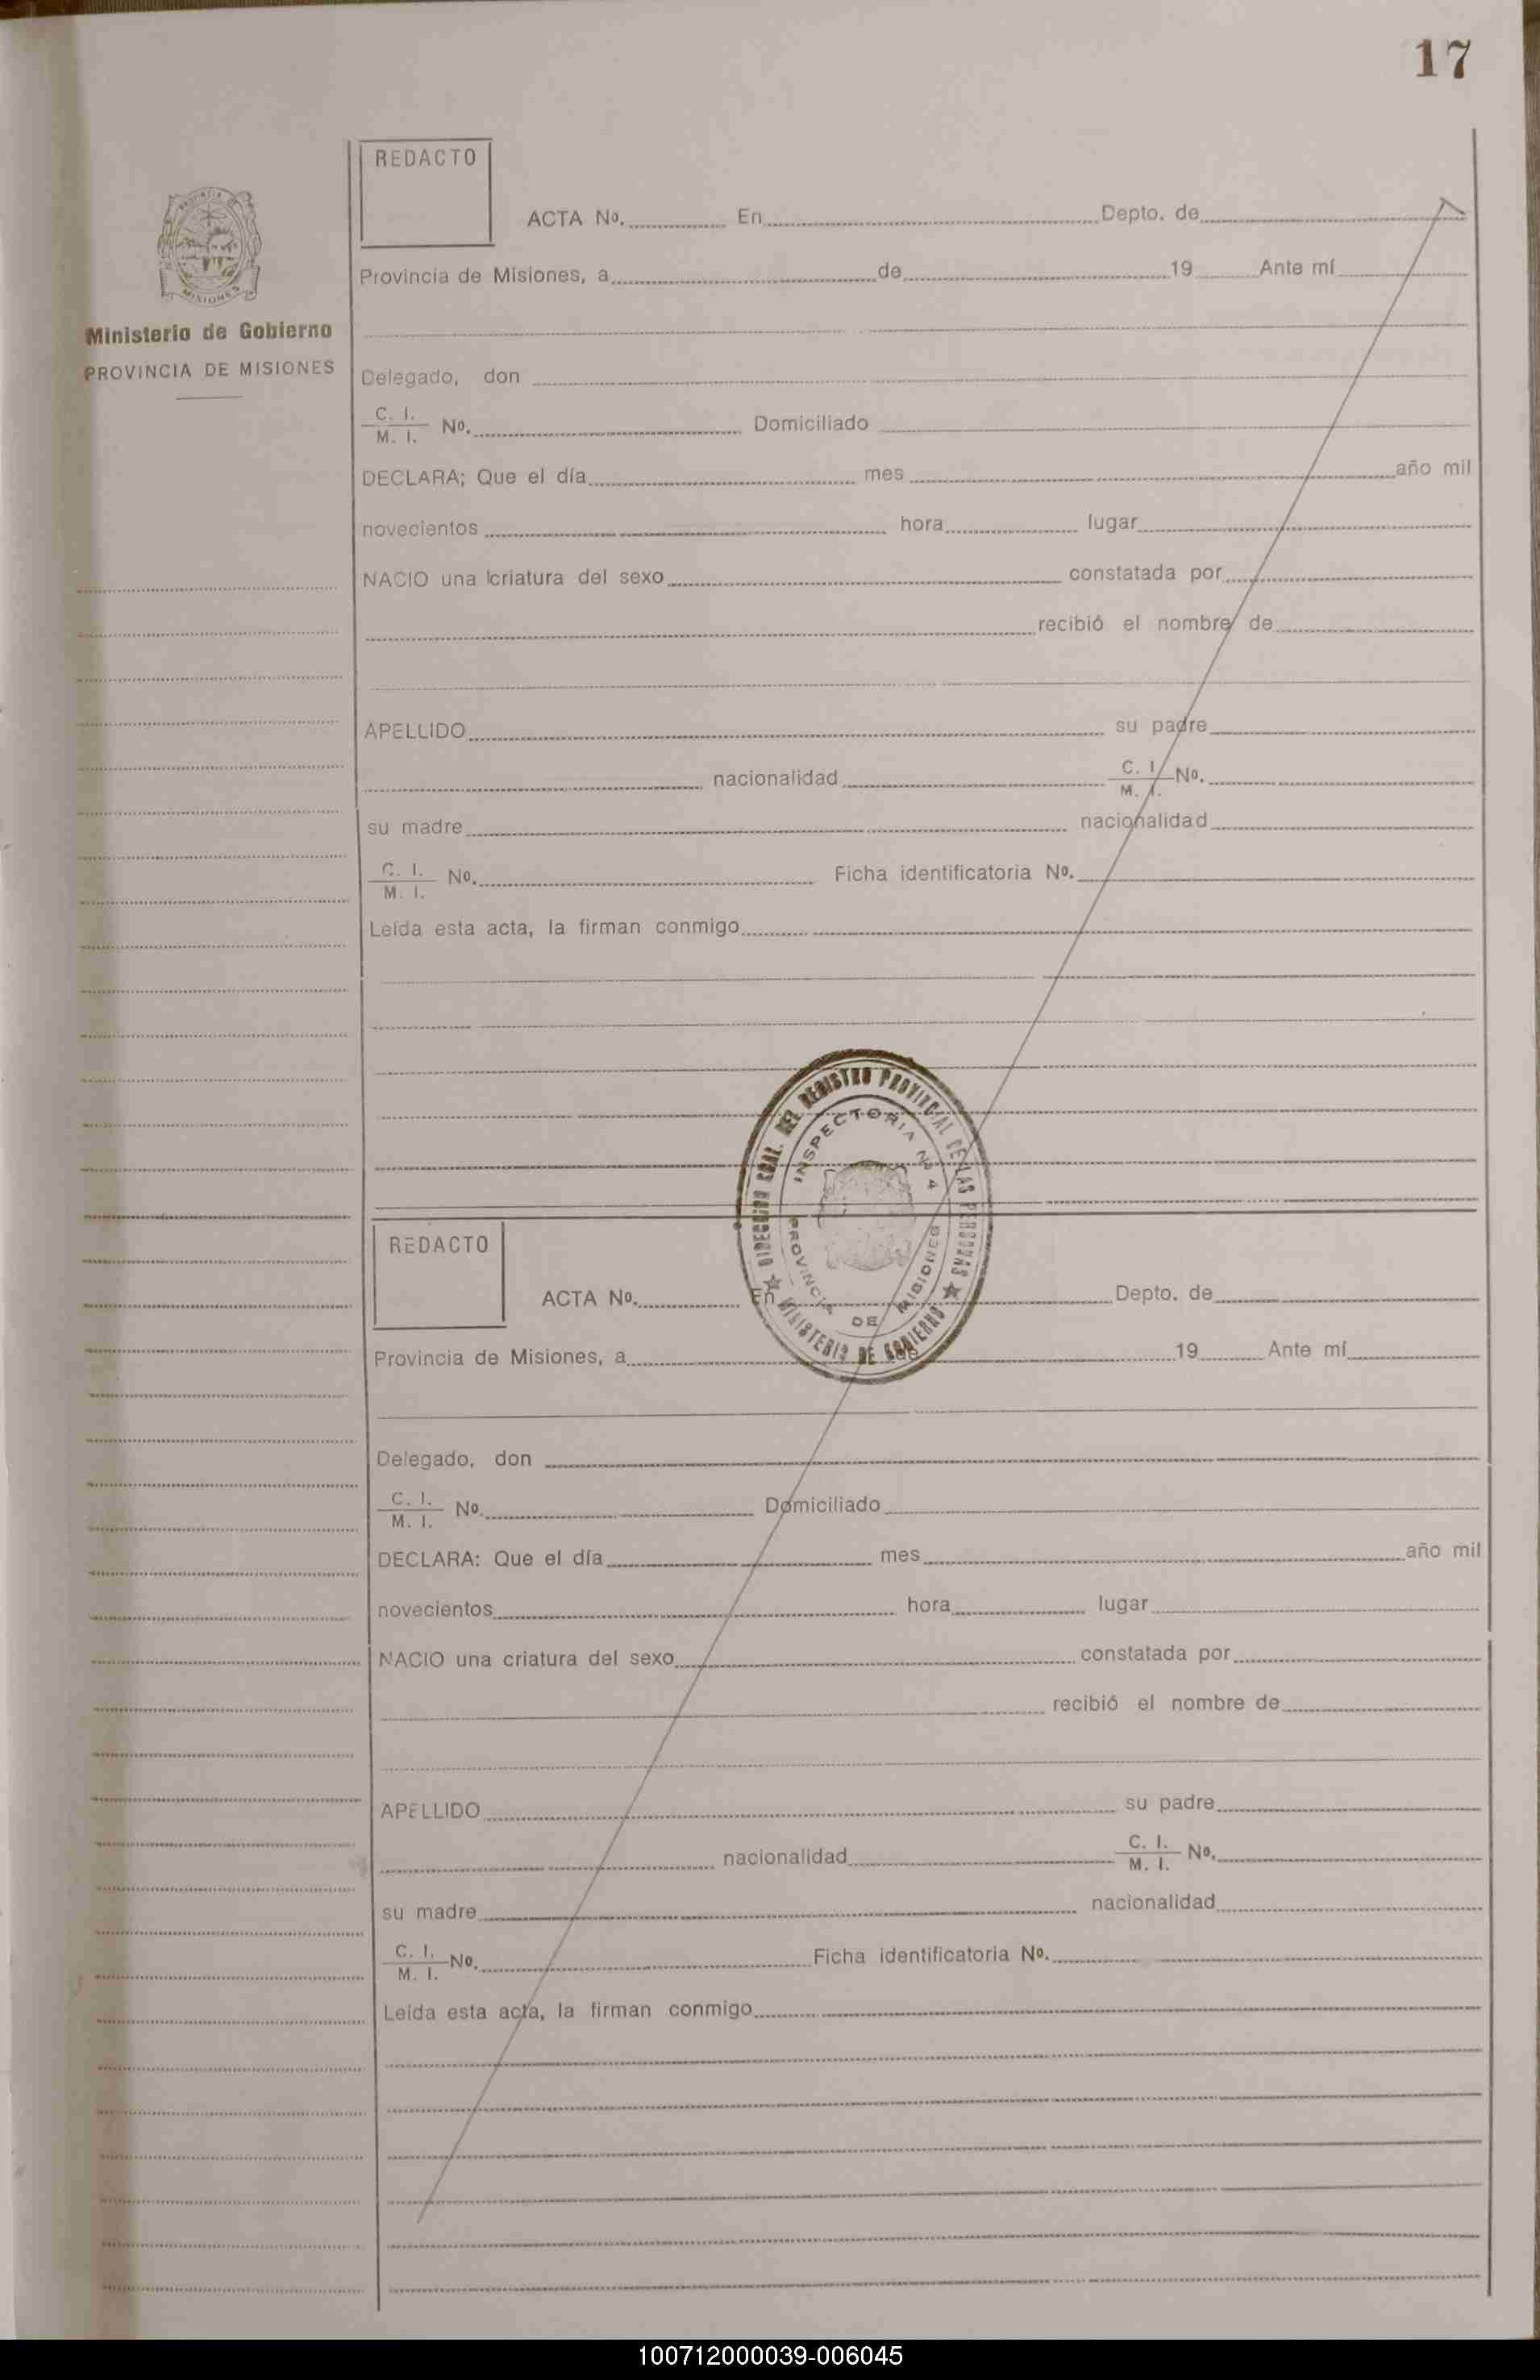 17
REDACTO
ACTA Nº. En Depto. de
PROVINCIA DE
MISIONES
Provincia de Misiones, a de 19 Ante mí
Ministerio de Gobierno
PROVINCIA DE MISIONES
Delegado, don
C. I.
M. I. Nº. Domiciliado
DECLARA; Que el día mes año mil
novecientos hora lugar
NACIO una criatura del sexo constatada por
recibió el nombre de
APELLIDO su padre
nacionalidad C. I.
M. I. Nº.
su madre nacionalidad
C. I.
M. I. Nº. Ficha identificatoria Nº.
Leída esta acta, la firman conmigo
DIRECCION GRAL. DEL REGISTRO PROVINCIAL DE LAS PERSONAS
INSPECTORIA Nº 4
PROVINCIA DE MISIONES
MINISTERIO DE GOBIERNO
REDACTO
ACTA Nº. En Depto. de
Provincia de Misiones, a de 19 Ante mí
Delegado, don
C. I.
M. I. Nº. Domiciliado
DECLARA: Que el día mes año mil
novecientos hora lugar
NACIO una criatura del sexo constatada por
recibió el nombre de
APELLIDO su padre
nacionalidad C. I.
M. I. Nº.
su madre nacionalidad
C. I.
M. I. Nº. Ficha identificatoria Nº.
Leída esta acta, la firman conmigo
100712000039-006045